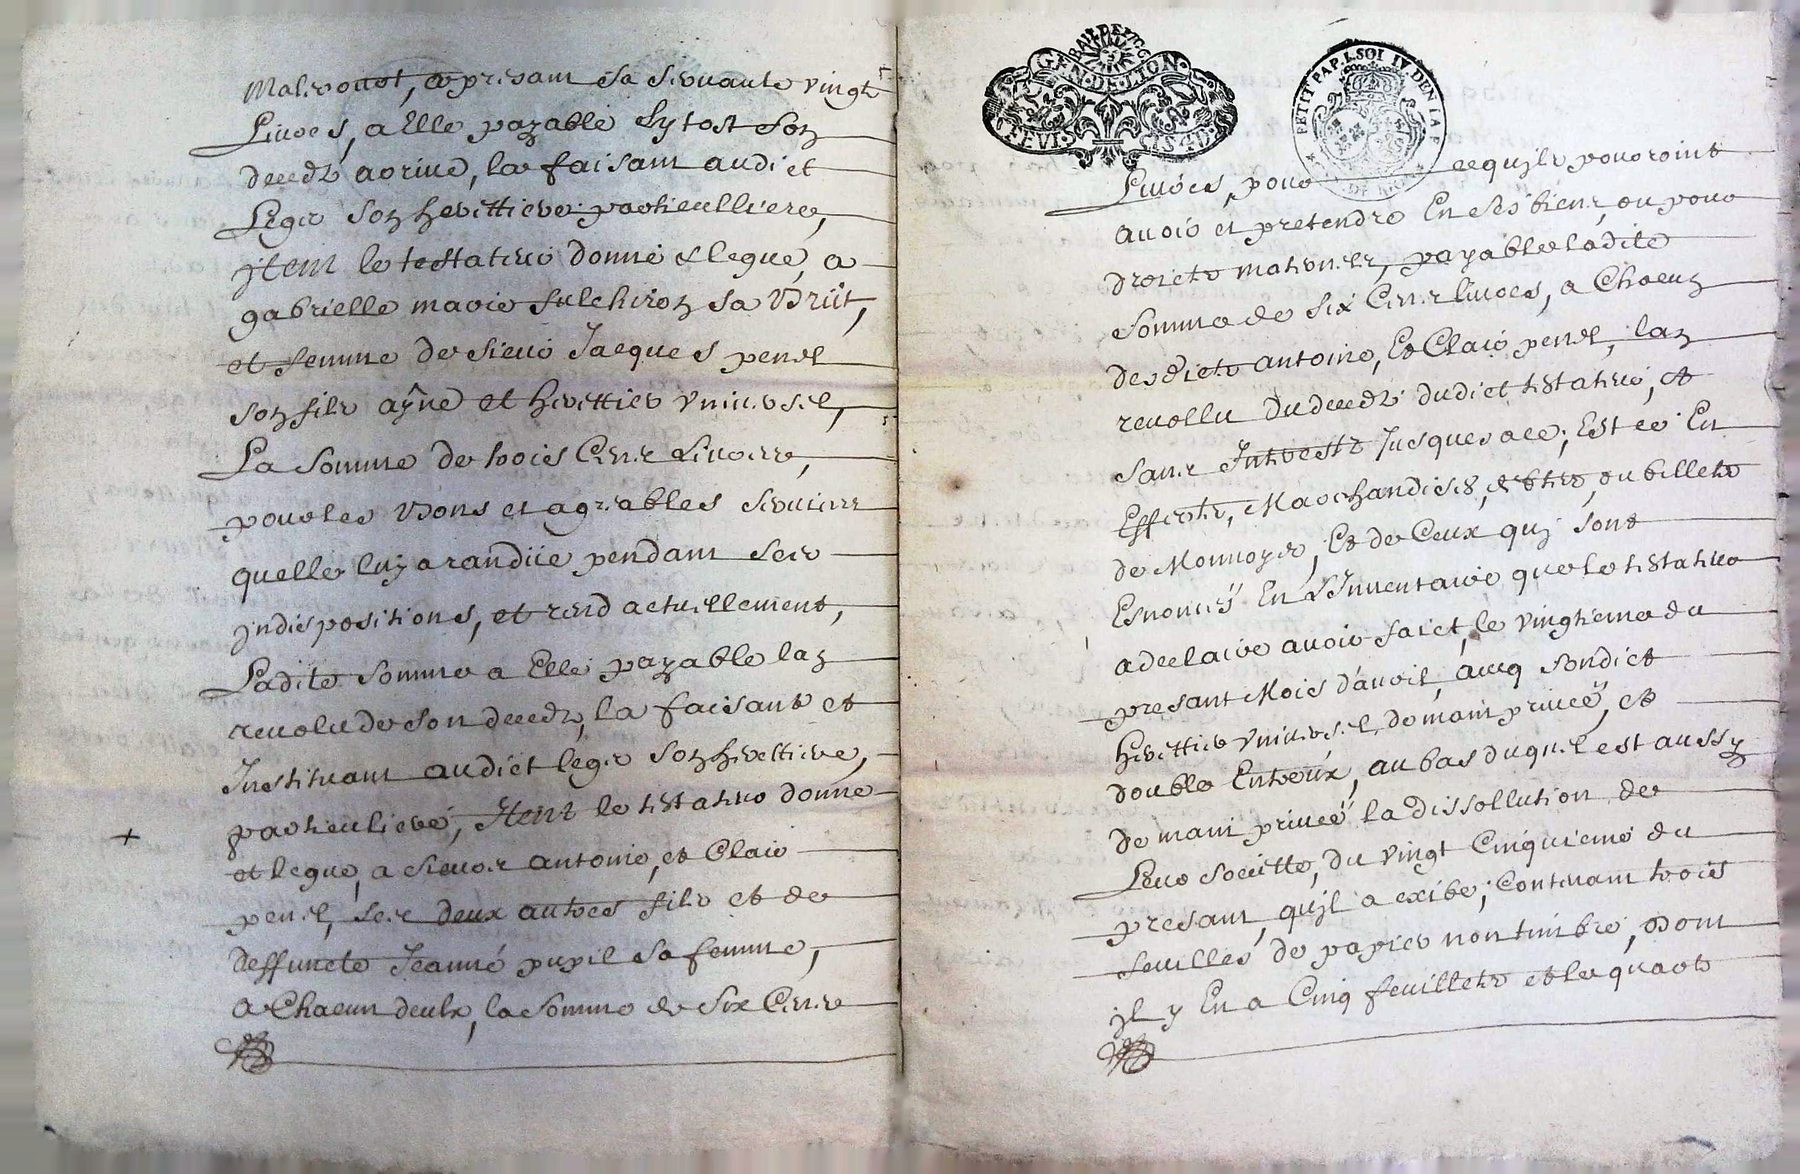 Malvouot, a present sa servante vingt
Livres, a Elle payable sy tost son
deceds arrive, la faisant audict
Legs son herittiere particulliere,
jtem le testateur donne et legue, a
gabrielle marie fulchiron sa Bruit,
et femme de sieur Jacques penel
son fils ayne et herittier vniversel,
La somme de trois Cens Livres,
pour les Bons et agreables services
quelle luy a randue pendant ses
jndispositions, et rend actuellement,
Ladite somme a Elle payable lan
revolu de son deceds, la faisant et
Instituant audict legs son herittiere,
particuliere, Item le testateur donne
et legue, a sieurs antoine, et Clair
penel, ses deux autres fils et de
deffuncte Jeanne pupil sa femme,
a Chacun deulx, la somme de Six Cens
+
BAIL DE
GEN. DE LION.
FEVI.
PETIT PAP. 1. SOL IV. DEN LA F
Livres, pour ce quyls pourroint
avoir et pretendre En ses biens, ou pour
droicts maternels, payable ladite
somme de six Cens livres, a Chacun
desdicts antoine, Et Clair penel, lan
revollu du deceds dudict testateur, et
sans Intherests Jusques a ce; Est ce En
Effects, Marchandises, debtes, ou billets
de Monnoyes, Et de Ceux quj sont
Esnoncés En L'Inventaire que le testateur
a declaire avoir faict, le vingtieme du
presant Mois d'avril, avecq sondict
herittier vniversel, de main privéé, et
double Entreux, au bas duquel est aussy
de main privéé la dissollution de
Leur societte, du vingt Cinquieme du
presant, quyl a exibé; Contenant trois
feuilles de papier non timbré, Dont
jl y En a Cinq feuillets et le quart